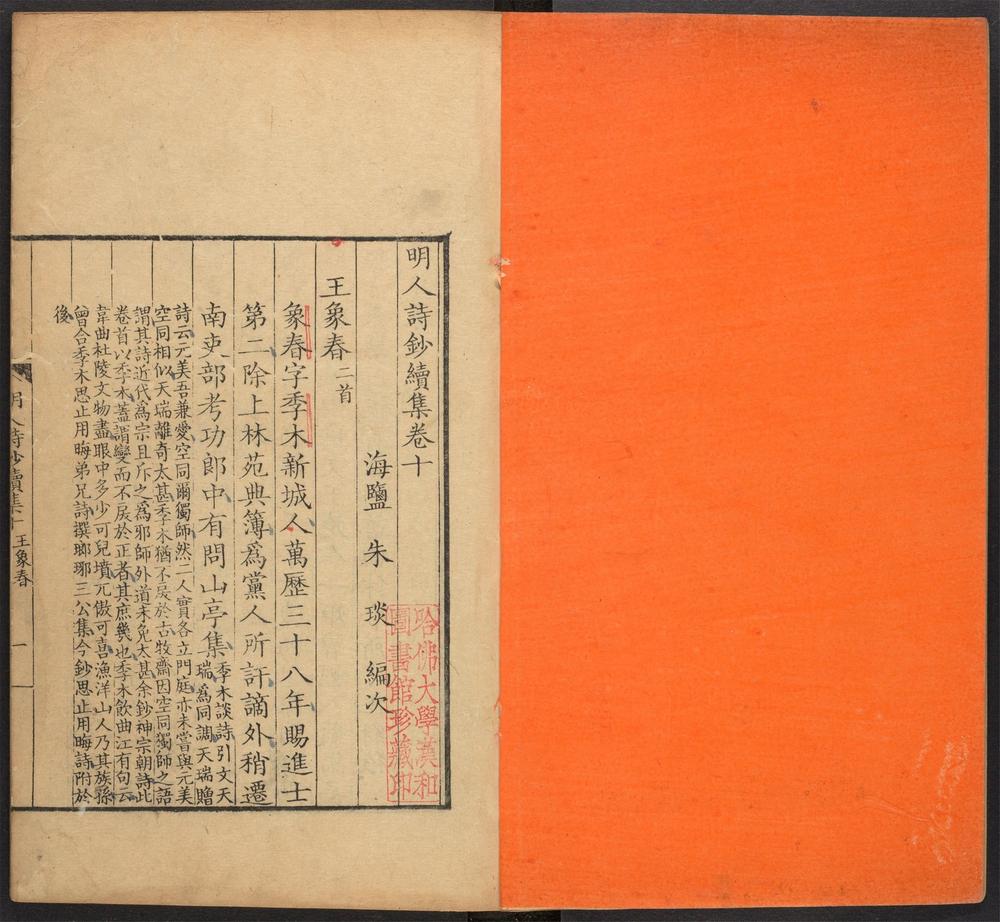 明人詩鈔續集卷十
海鹽 朱 琰 編次
王象春二首
象春字季木新城人萬歷三十八年賜進士
第二除上林苑典簿爲黨人所訐謫外稍遷
南吏部考功郎中有問山亭集季木談詩引文天
瑞爲同調天瑞贈
詩云元美吾兼愛空同爾獨師然二人實各立門庭亦未嘗與元美
空同相似天瑞離奇太甚季木猶不戾於古牧齋因空同獨師之語
謂其詩近代爲宗且斥之爲邪師外道未免太甚余鈔神宗朝詩此
卷首以季木蓋謂變而不戾於正者其庶幾也季木飲曲江有句云
韋曲杜陵文物盡眼中多少可兒墳兀傲可喜漁洋山人乃其族孫
曾合季木思止用晦弟兄詩撰瑯琊三公集今鈔思止用晦詩附於
後
明人詩鈔續集十 王象春 一
哈佛大學漢和
圖書館珍藏印